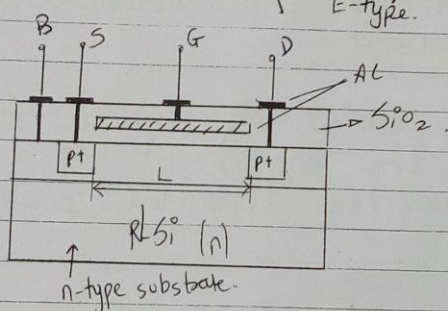 E-type.
B S G D
AL
SiO2
P+ P+
L
Si (n)
n-type substrate.